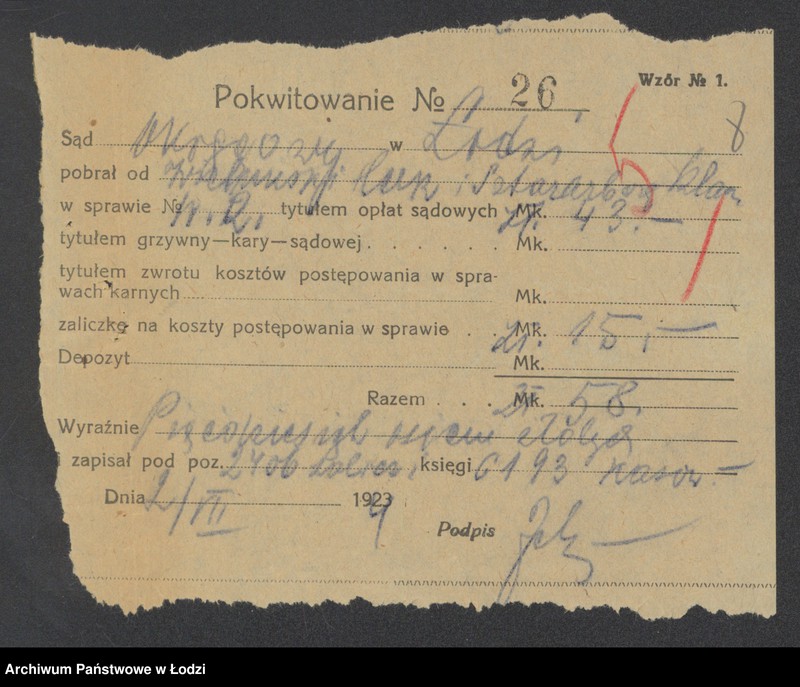 Wzór № 1.
Pokwitowanie № 26
8
Sąd Okręgowy w Łodzi
pobrał od i
w sprawie № tytułem opłat sądowych Mk. zł. 43.—
tytułem grzywny—kary—sądowej . . . . . . Mk.
tytułem zwrotu kosztów postępowania w spra-
wach karnych Mk.
zaliczkę na koszty postępowania w sprawie . . Mk. zł. 15.—
Depozyt Mk.
Razem . . . Mk. zł. 58.
Wyraźnie Pięćdziesiąt osiem złotych
i zapisał pod poz. 2706 księgi 6193 kasow.—
Dnia 2/VII 1923 4
Podpis
Archiwum Państwowe w Łodzi